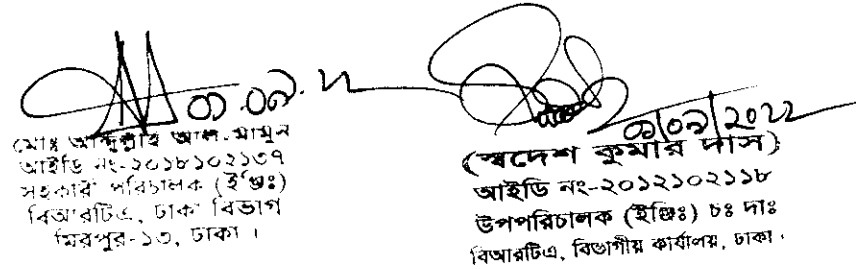 ০১.০৯.২২
মোঃ আব্দুল্লাহ আল-মামুন
আইডি নং-২০১৮১০২১৩৭
সহকারী পরিচালক (ইঞ্জিঃ)
বিআরটিএ, ঢাকা বিভাগ
মিরপুর-১৩, ঢাকা।
০১/০৯/2022
(স্বদেশ কুমার দাস)
আইডি নং-২০১২১০২১১৮
উপপরিচালক (ইঞ্জিঃ) চঃ দাঃ
বিআরটিএ, বিভাগীয় কার্যালয়, ঢাকা।